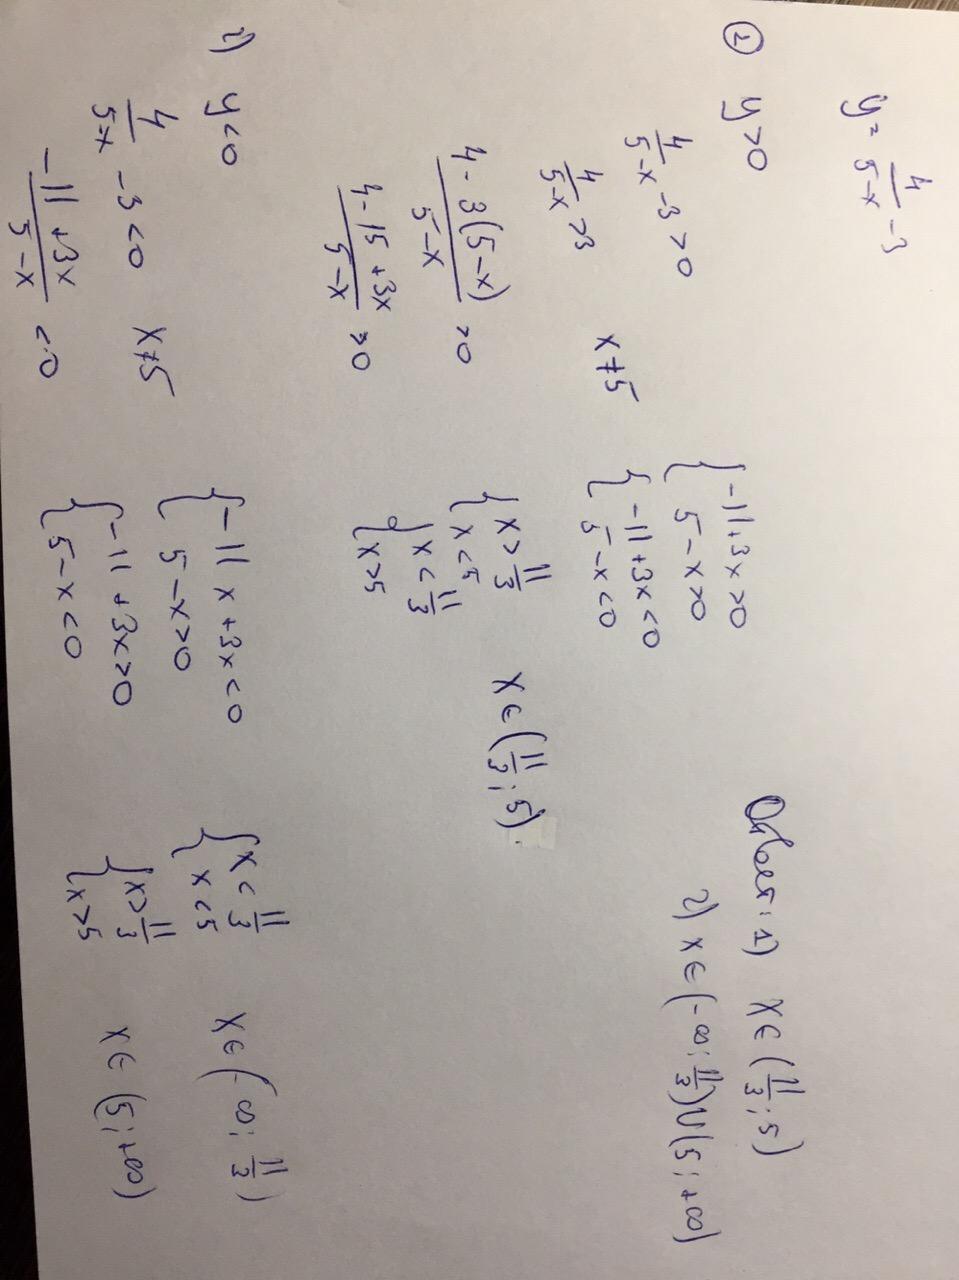 y = 4/(5-x) - 3
① y>0
4/(5-x) - 3 > 0
4/(5-x) > 3
x ≠ 5
(4 - 3(5-x))/(5-x) > 0
(4 - 15 + 3x)/(5-x) > 0
{ -11+3x>0
5-x>0
{ -11+3x<0
5-x<0
{ x > 11/3
x < 5
{ x < 11/3
x > 5
x ∈ (11/3; 5).
2) y<0
4/(5-x) - 3 < 0
x ≠ 5
(-11 + 3x)/(5-x) < 0
{ -11x + 3x < 0
5-x>0
{ -11 + 3x > 0
5-x<0
{ x < 11/3
x < 5
{ x > 11/3
x > 5
x ∈ (-∞; 11/3)
x ∈ (5; +∞)
Ответ: 1) x ∈ (11/3; 5)
2) x ∈ (-∞; 11/3) ∪ (5; +∞)